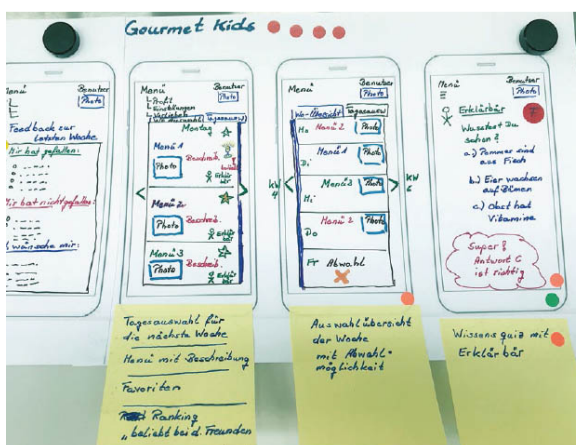 Gourmet Kids
Menü
Benutzer
Photo
Feedback zur
letzten Woche
Mir hat gefallen:
Mir hat nicht gefallen:
wünsche mir:
Menü
Profil
Einstellungen
Benutzer
Photo
Tagesmenü
Montag
Menü 1
Photo
Beschreib.
Menü 2
Photo
Beschreib.
Erklär
bär
Menü 3
Photo
Beschreib.
Erklär
bär
Menü
Benutzer
Photo
Wo-Übersicht
Tagesmenü
KW
4
KW
6
Mo
Menü 2
Photo
Di
Menü 1
Photo
Mi
Menü 3
Photo
Do
Menü 2
Photo
Fr
Abwahl
Menü
Benutzer
Photo
Erklärbär
Wusstest Du
schon?
a.) Pommes sind
aus Fisch
b.) Eier wachsen
auf Bäumen
c.) Obst hat
Vitamine
Super!
Antwort C
ist richtig
Tagesauswahl für
die nächste Woche
Menü mit Beschreibung
Favoriten
Ranking
"beliebt bei d. Freunden
Auswahlübersicht
der Woche
mit Abwahl-
möglichkeit
Wissensquiz mit
Erklärbär